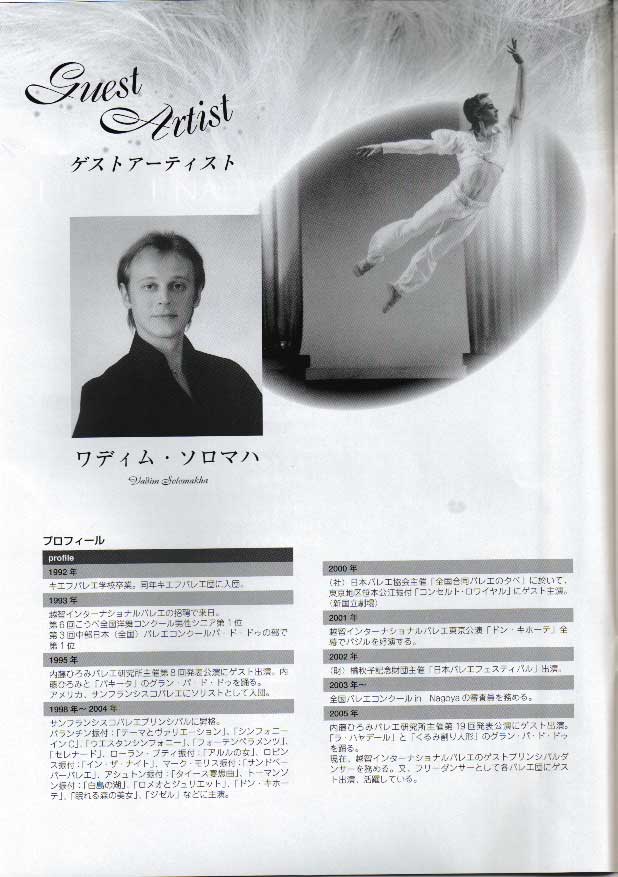 Guest
Artist
ゲストアーティスト
ワディム・ソロマハ
Vadim Solomakha
プロフィール
profile
1992 年
キエフバレエ学校卒業。同年キエフバレエ団に入団。
1993 年
越智インターナショナルバレエの招聘で来日。
第6回こうべ全国洋舞コンクール男性シニア第1位
第3回中部日本（全国）バレエコンクールパ・ド・ドゥの部で
第1位
1995 年
内藤ひろみバレエ研究所主催第8回発表公演にゲスト出演。内
藤ひろみと「パキータ」のグラン・パ・ド・ドゥを踊る。
アメリカ、サンフランシスコバレエにソリストとして入団。
1998 年～ 2004 年
サンフランシスコバレエプリンシパルに昇格。
バランチン振付：「テーマとヴァリエーション」、「シンフォニー
イン C」、「ウエスタンシンフォニー」、「フォーテンペラメンツ」、
「セレナード」、ローラン・プティ振付：「アルルの女」、ロビン
ス振付：「イン・ザ・ナイト」、マーク・モリス振付：「サンドペー
パーバレエ」、アシュトン振付：「タイース瞑想曲」、トーマンソ
ン振付：「白鳥の湖」、「ロメオとジュリエット」、「ドン・キホー
テ」、「眠れる森の美女」、「ジゼル」などに主演。
2000 年
（社）日本バレエ協会主催「全国合同バレエの夕べ」に於いて、
東京地区笹本公江振付「コンセルト・ロワイヤル」にゲスト主演。
（新国立劇場）
2001 年
越智インターナショナルバレエ東京公演「ドン・キホーテ」全
幕でバジルを好演する。
2002 年
（財）橘秋子記念財団主催「日本バレエフェスティバル」出演。
2003 年～
全国バレエコンクール in Nagoya の審査員を務める。
2005 年
内藤ひろみバレエ研究所主催第 19 回発表公演にゲスト出演。
「ラ・バヤデール」と「くるみ割り人形」のグラン・パ・ド・ドゥ
を踊る。
現在、越智インターナショナルバレエのゲストプリンシパルダ
ンサーを務める。又、フリーダンサーとして各バレエ団にゲス
ト出演、活躍している。